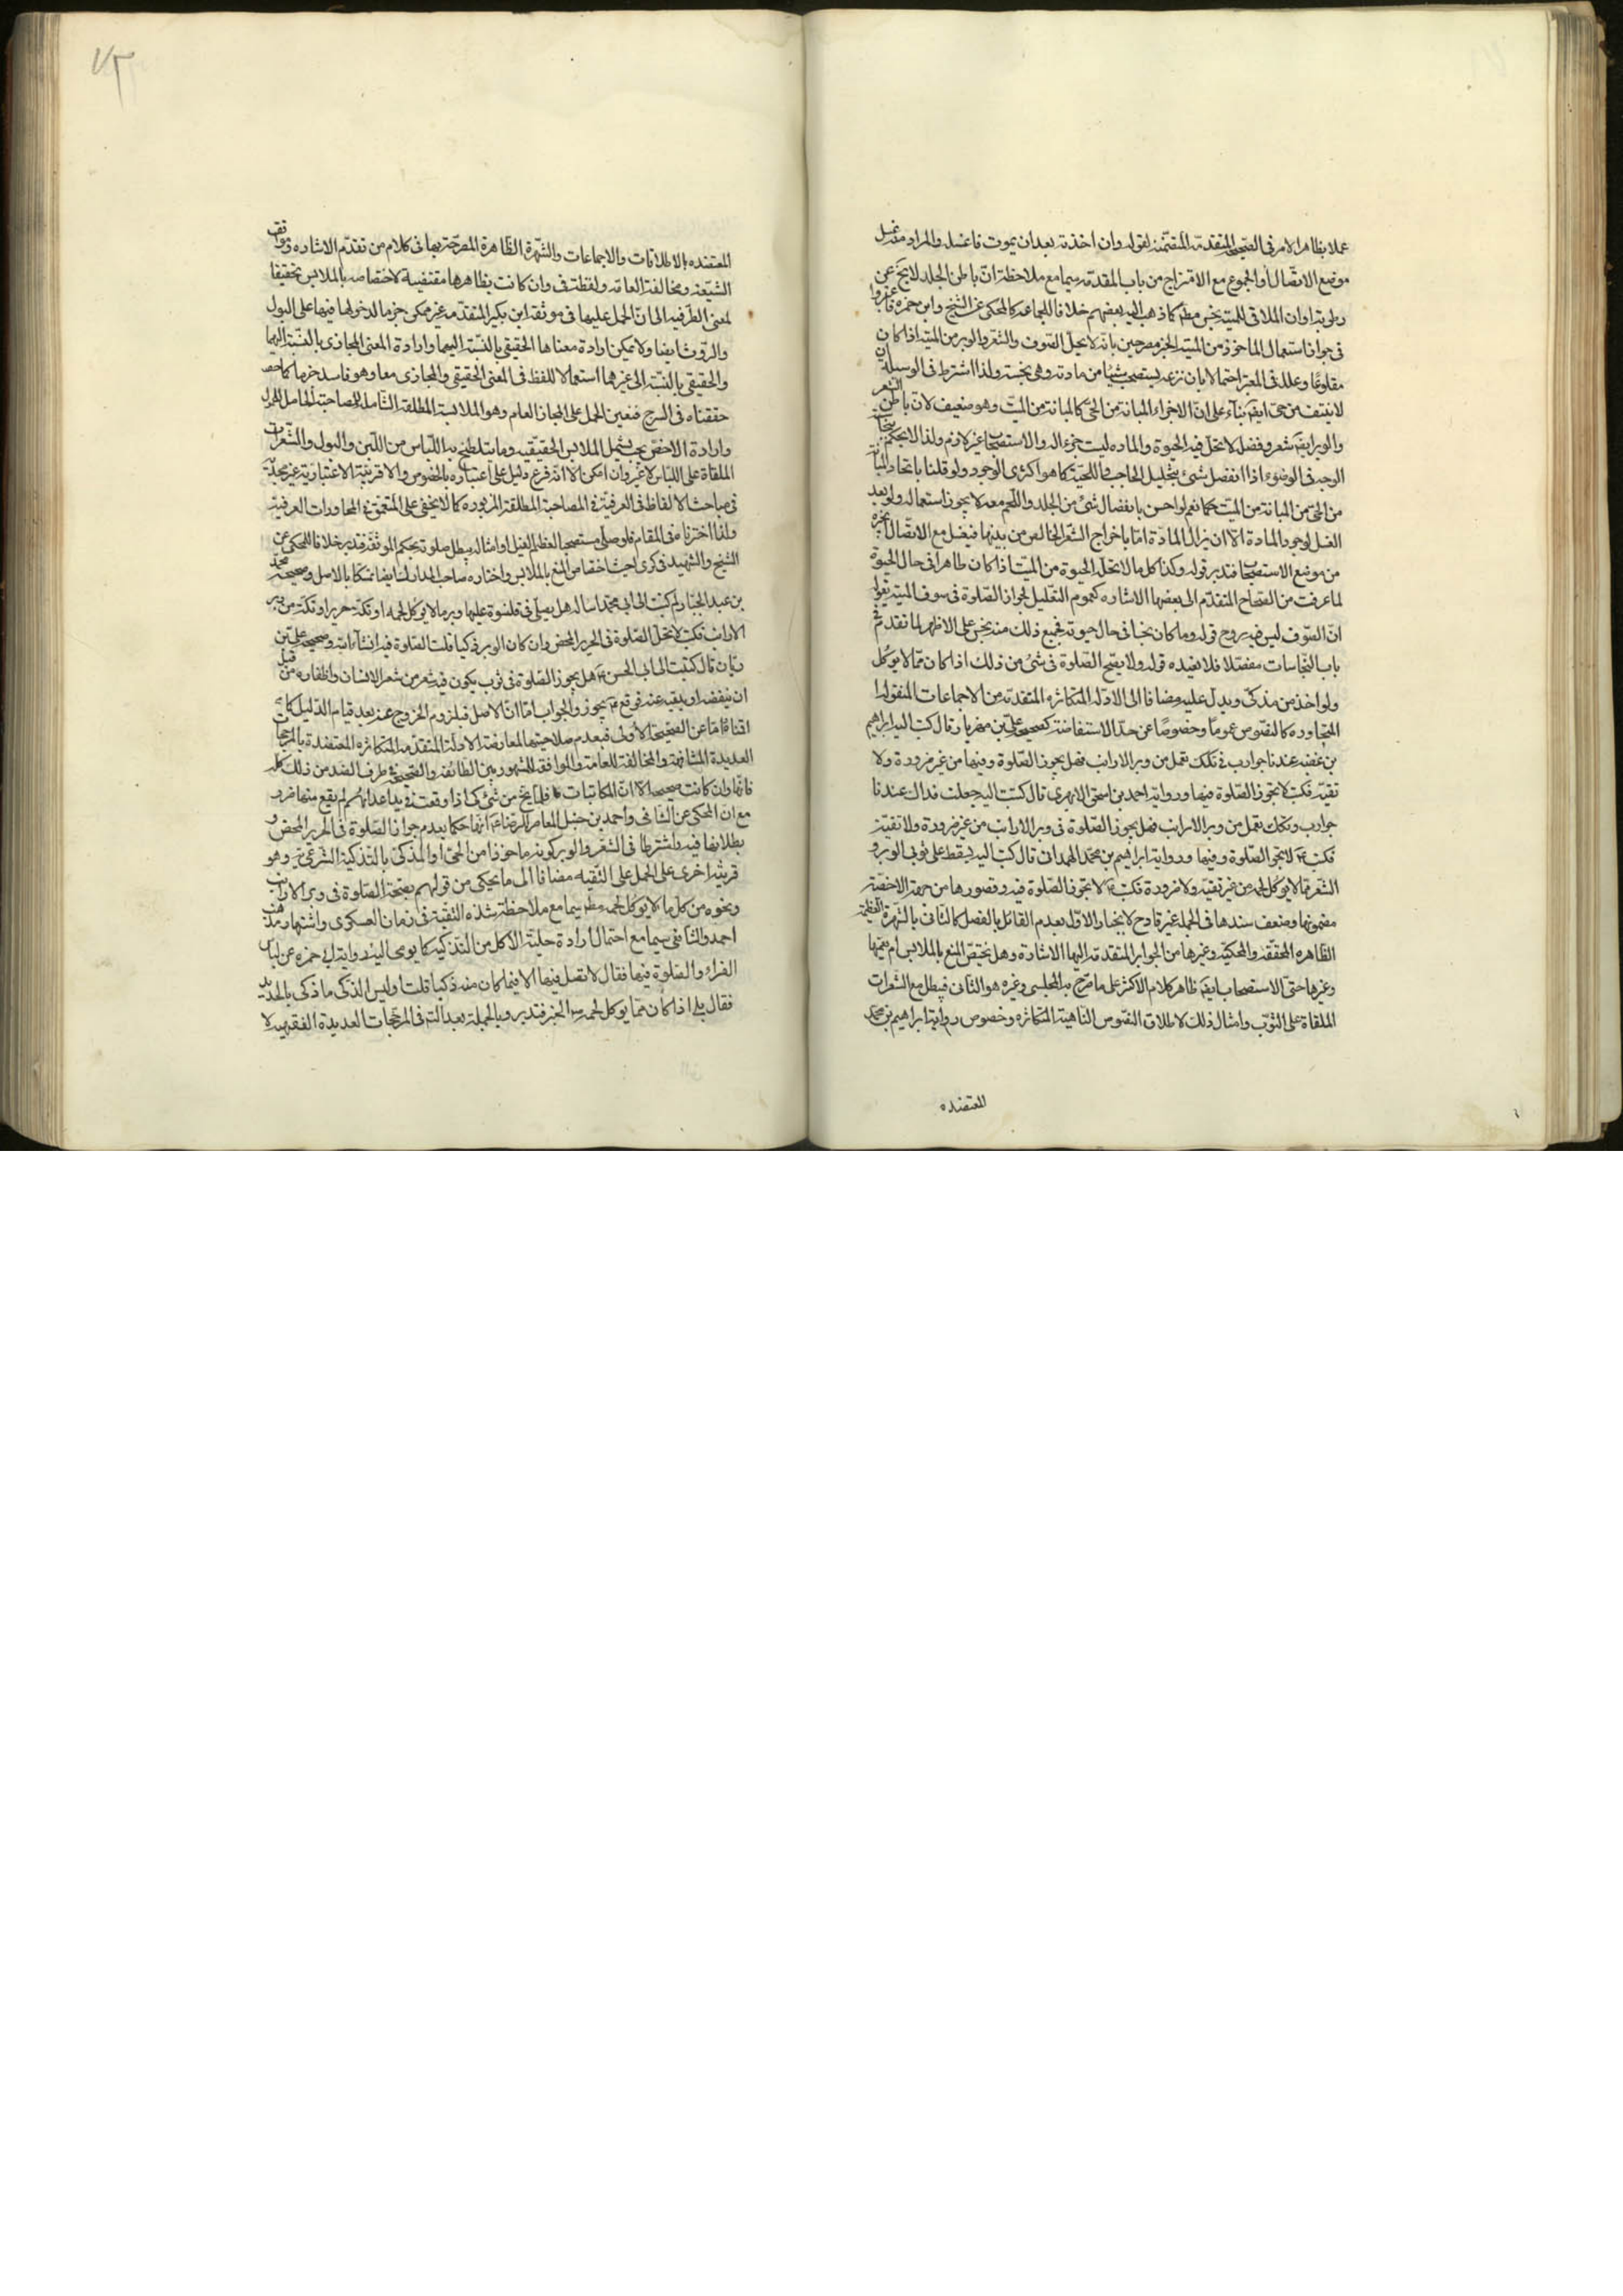 عملا بظاهر الامر فى الصحيحة المتقدمة المتضمنة لقوله وان اخذته بعد ان يموت فاغسله والمراد منه غسل
موضع الاتصال او المجموع مع الامتزاج من باب المقدمة سيما مع ملاحظة انّ باطن الجلد لا يخ عن
رطوبة وان الملاقى للميتة نجس مط كما ذهب اليه بعضهم خلافا للجماعة كالمحكى عن الشيخ وابن حمزه
فى جواز استعمال الماخوذ من الميتة الجز مصرحين بانه لا يحل الصوف والشعر والوبر من الميتة اذا كان
مقلوعًا وعلل فى المعتبر احتمالا بان نزعه يستصحب شيئا من مادته وهى نجسة ولذا اشترط فى الوسيلة ان
لا ينتف من حى ايضا بناء على انّ الاجزاء المبانة من الحىّ كالمبانة من الميّت وهو ضعيف لانّ باطن الشعر
والوبر ايضا شعر وفضل لا تحل فيه الحيوة والماده ليست جزء اله والاستصحاب غير لازم ولذا لا يحكم
الوجه فى الوضوء اذا انفصل شىء بتخليل الحاجب واللحية كما هو اكثرى الوجود ولو قلنا باتحاد المبانة
من الحى من المبانة من الميّت حكما نعم لو احسّ بانفصال شىء من الجلد واللحم معه لا يجوز استعماله ولو بعد
الغسل لوجود المادة الا ان يزال المادّة امّا باخراج الشعر الخالص من بينها فيغسل مع الاتصال
من موضع الاستصحاب فتدبر قوله وكذا كل ما لا تحله الحيوة من الميّت اذا كان طاهرا فى حال الحيوة
لما عرفت من الصحاح المتقدّم الى بعضها الاشاره كعموم التعليل لجواز الصلوة فى صوف الميتة بقوله
انّ الصّوف ليس فيه روح قوله وما كان نجسا فى حال حيوته فجميع ذلك منه نجس على الاظهر لما تقدم فى
باب النجاسات مفصّلا فلا نعيده قوله ولا يصحّ الصّلوة فى شىء من ذلك اذا كان ممّا لا يؤكل
ولو اخذ من مذكّى ويدل عليه مضافا الى الادلة المتكاثره المتقدمة من الاجماعات المنقولة
المتجاوزه كالنصوص عموما وخصوصًا عن حدّ الاستفاضة كصحيحة على بن مهزيار قال كتب اليه ابراهيم
بن عقبه عندنا جوارب وتكك تعمل من وبر الارانب فهل يجوز الصّلوة فيها من غير ضرورة ولا
تقيّة فكتب لا تجوز الصّلوة فيها ورواية احمد بن اسحق الابهرى قال كتبت اليه جعلت فداك عندنا
جوارب وتكك تعمل من وبر الارانب فهل يجوز الصّلوة فى وبر الارانب من غير ضرورة ولا تقيّة
فكتب ع لا تجوز الصلوة فيها ورواية ابراهيم بن محمّد الهمدانى قال كتبت اليه يسقط على ثوبى الوبر و
الشعر ممّا لا يؤكل لحمه من غير تقيّة ولا ضرورة فكتب ع لا تجوز الصّلوة فيه وقصورها من جهة الاخصيّة
مضمونها وضعف سندها فى الجملة غير قادح لانجبار الاوّل بعدم القائل بالفصل كالثانى بالشهرة العظيمة
الظاهرة المحققة والمحكيّة وغيرها من الجوابر المتقدمة اليها الاشارة وهل يختصّ المنع بالملابس ام يعمّها
وغيرها حتى الاستصحاب ايضا ظاهر كلام الاكثر على ما صرّح به المجلسى وغيره هو الثانى فيبطل مع الشعرات
الملقاة على الثوب وامثال ذلك لاطلاق النصوص الناهية المتكاثره وخصوص رواية ابراهيم بن محمد
المعتضده
٧٣
المعتضده بالاطلاقات والاجماعات والشّهرة الظّاهرة المصرّحة بها فى كلام من تقدّم الاشاره
الشيعة ومخالفة العامة ولفظة فى وان كانت بظاهرها مقتضية لاختصاصه بالملابس تحقيقا
لمعنى الظرفية الى انّ الحمل عليها فى موثقة ابن بكير المتقدّمة غير ممكن جزما لدخولها فيها على البول
والروث ايضا ولا يمكن ارادة معناها الحقيقى بالنسبة اليهما وارادة المعنى المجازى بالنسبة اليهما
والحقيقى بالنسبة الى غيرهما استعمالا للفظ فى المعنى الحقيقى والمجازى معا وهو فاسد جزما كما
حققناه فى السرج فتعين الحمل على المجاز العام وهو الملابسة المطلقة الشاملة للمصاحبة
وارادة الاخصّ بحيث يشمل الملابس الحقيقيه وما يتلطخ به اللّباس من اللّبن والبول والشعرات
الملقاة على اللّباس لا غير وان امكن الا انّه فرع دليل على اعتباره بالخصوص والا قرينة الاعتبارية غير مجدية
فى مباحث الالفاظ فى العرفية فى المصاحبة المطلقة المزبوره كما لا يخفى على المتعمق فى المحاورات العرفية
ولذا اخترناه فى المقام فلو صلّى مستصحبا لعظم الفيل او امثاله يبطل صلوته بحكم الموثقة فتدبر خلافا للمحكى عن
الشيخ والشهيد فى كرى حيث اختصا المنع بالملابس واختاره صاحب المدارك ايضا تمسّكا بالاصل وصحيحة محمّد
بن عبد الجبار كتبت الى ابى محمّد اساله هل يصلّى فى قلنسوة عليها وبر ما لا يؤكل لحمه او تكّة حرير او تكّة من وبر
الارانب فكتب لا تحلّ الصّلوة فى الحرير المحض وان كان الوبر ذكيا حلّت الصّلوة فيه انشاء الله وصحيحة على بن
ريّان قال كتبت الى ابى الحسن ع هل يجوز الصلوة فى ثوب يكون فيه شعر من شعر الانسان واظفاره من قبل
ان ينفضه او يلقيه عنه فوقع ع يجوز والجواب امّا انّ الاصل فبلزوم الخروج عنه بعد قيام الدّليل
وامّا عن الصحيحة الاولى فبعدم صلاحيتها لمعارضة الادلة المتقدمة المتكاثره المعتضدة بالمرجحات
العديدة المشافهة والمخالفة للعامة والموافقة للمشهور بين الطائفة والصحيحة فى طرف الضد من ذلك كله
فانّها وان كانت صحيحة الا انّ المكاتبات قلما يخ من شىء كما اذا وقعت فى يد اعدائهم لم يقع منها ضرر
مع ان المحكى عن الشافعى واحمد بن حنبل المعاصر للرضا ع انهما حكما بعدم جواز الصّلوة فى الحرير المحض و
بطلانها فيه واشترطا فى الشعر والوبر كونه ماخوذا من الحىّ او المذكّى بالتذكية الشرعيّة وهو
قرينة اخرى على الحمل على التقيه مضافا الى ما يحكى من قولهم بصحة الصّلوة فى وبر الارانب
ونحوه من كل ما لا يؤكل لحمه مط سيما مع ملاحظة شدة التقية فى زمان العسكرى واشتهار مذهب
احمد والشافعى سيما مع احتمال ارادة حلية الاكل من التذكية كما يومى اليه رواية ابى حمزه عن لباس
الفراء والصّلوة فيها فقال لا تصل فيها الا فيما كان منه ذكيا قلت اوليس الذكى ما ذكى بالحديد
فقال بلى اذا كان ممّا يؤكل لحمه الخبر فتدبر وبالجملة بعد التّم فى المرجّحات العديدة الفقيه لا